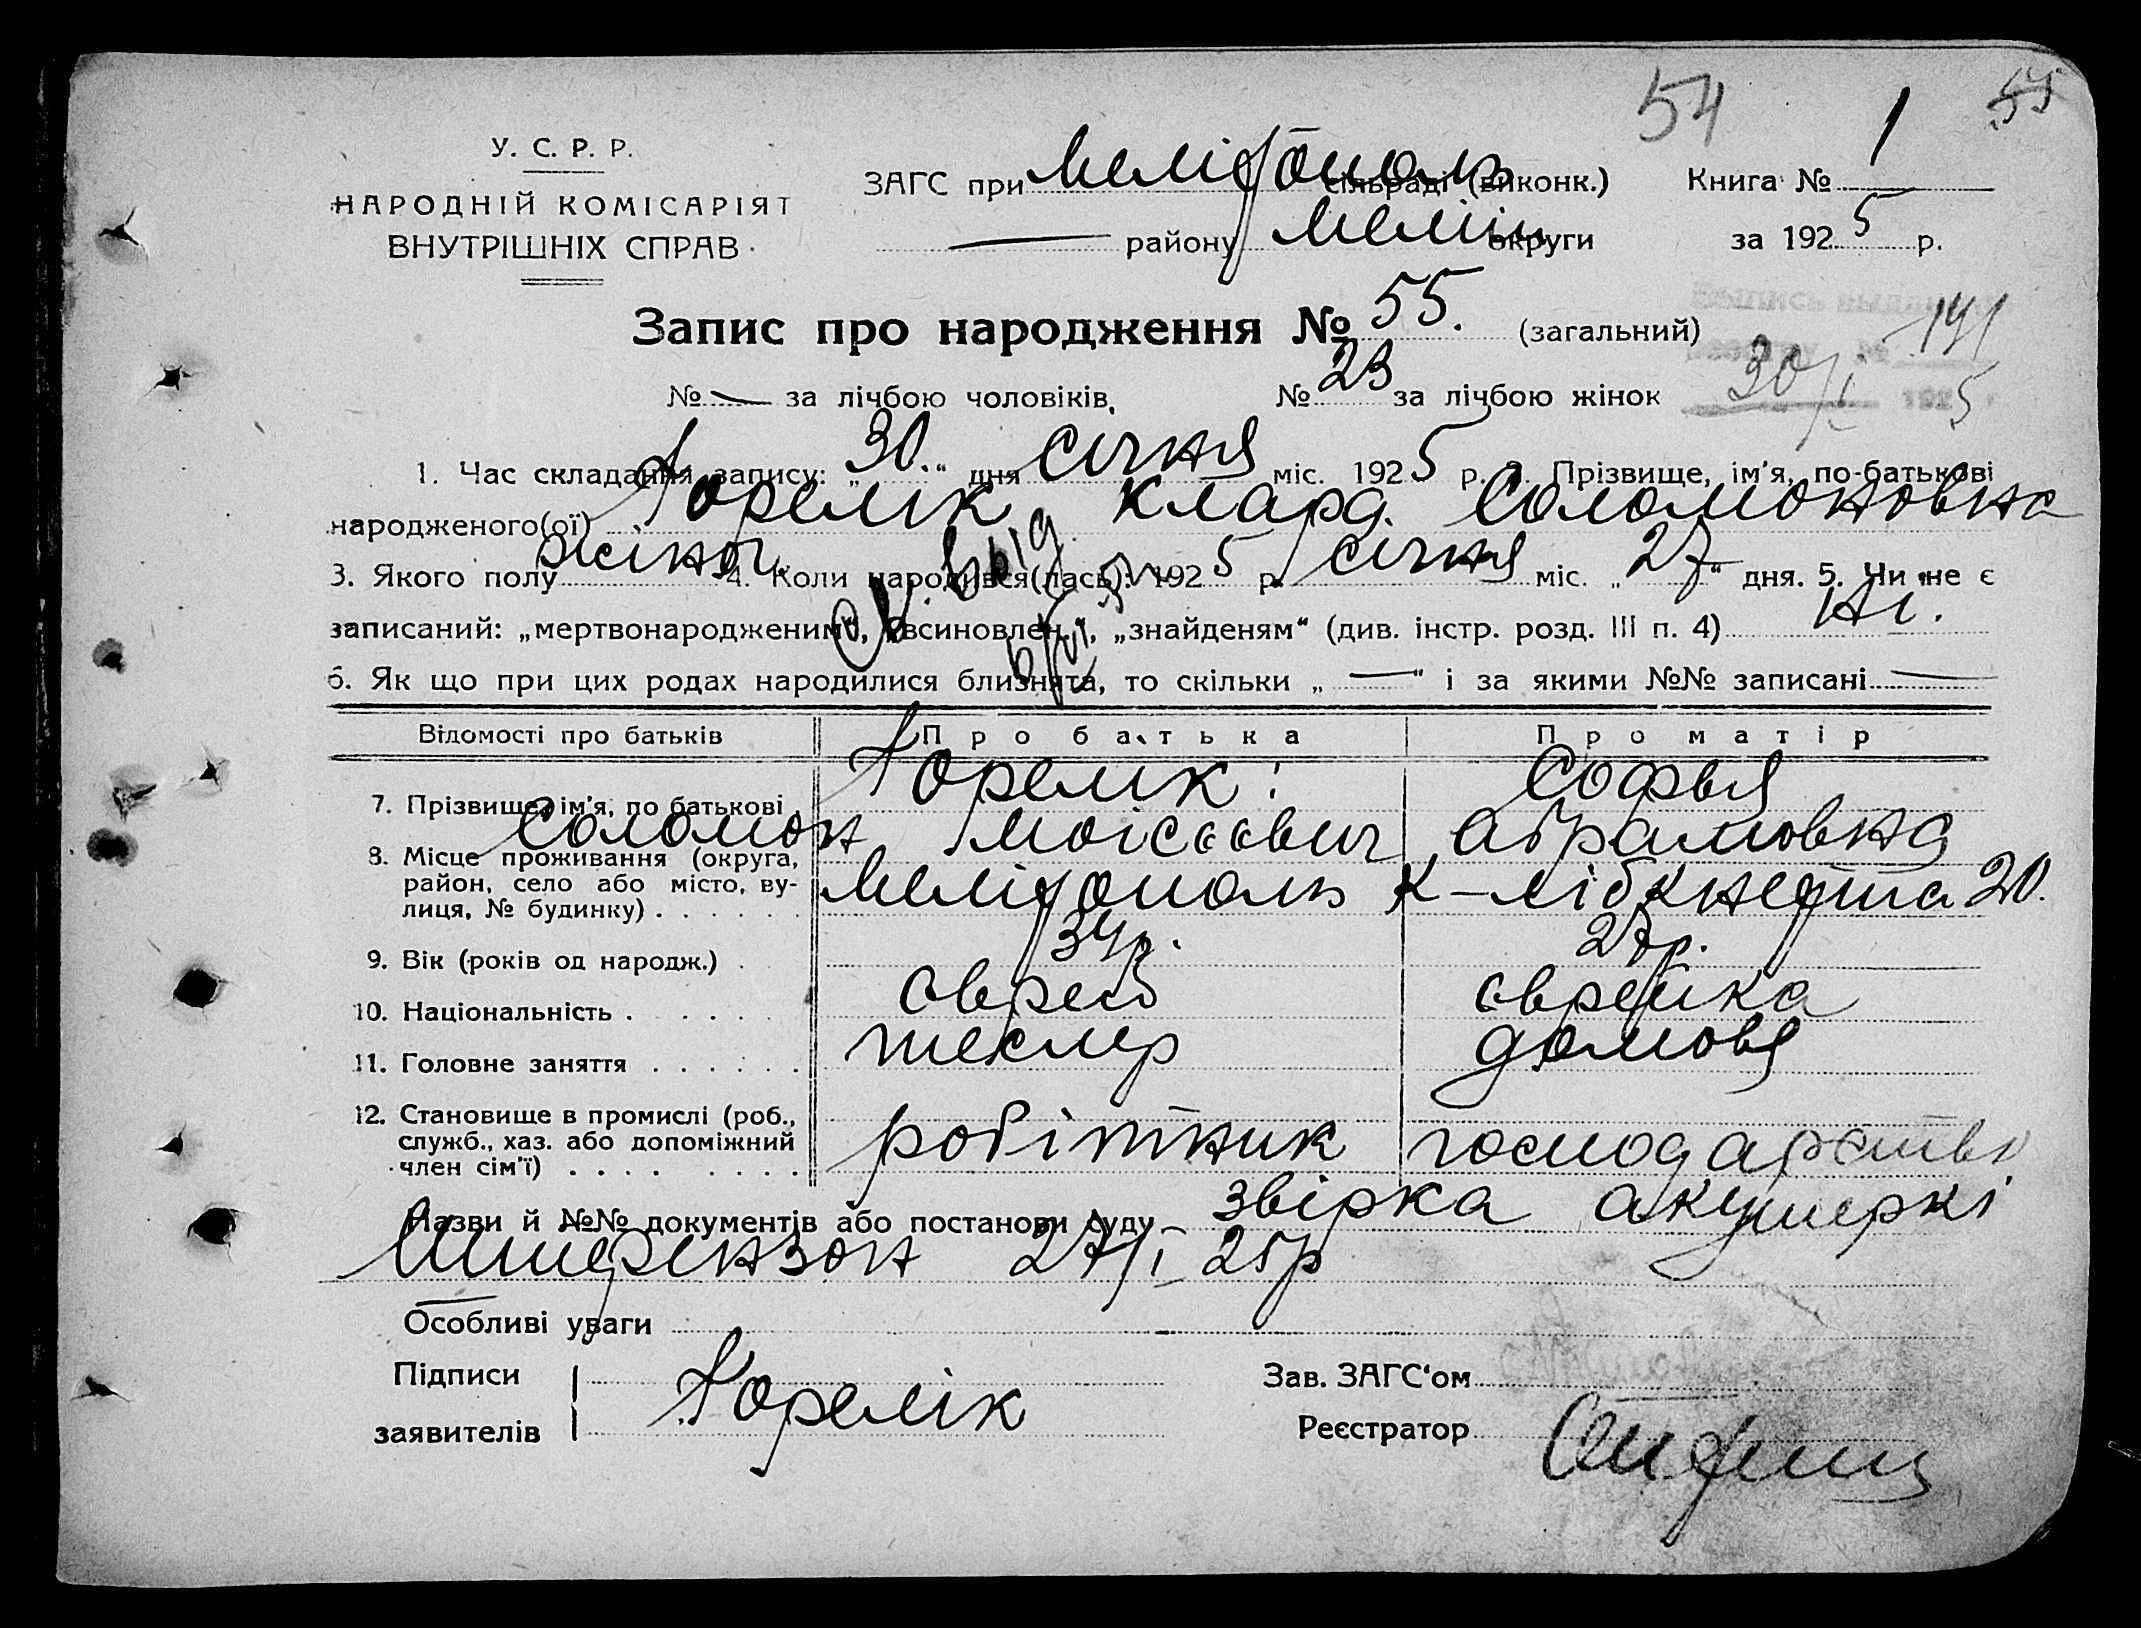 54 55
У. С. Р. Р.
НАРОДНІЙ КОМІСАРІЯТ
ВНУТРІШНІХ СПРАВ
ЗАГС при Мелітополь сільраді (виконк.) Книга № 1
— району Меліт округи за 1925 р.
Запис про народження № 55. (загальний)
191
№ — за лічбою чоловіків, № 23 за лічбою жінок 30/I 1925
1. Час складання запису: „30.“ дня січня міс. 1925 р. 2. Прізвище, ім'я, по-батькові
народженого(ої) Горелік Клара Соломоновна
3. Якого полу жіноч. 4. Коли народився(лась): 1925 р. січня міс. „27“ дня. 5. Чи не є
записаний: „мертвонародженим“, „усиновлен.“, „знайденям“ (див. інстр. розд. III п. 4) ні.
6. Як що при цих родах народилися близнята, то скільки „—“ і за якими №№ записані —
Відомості про батьків Про батька Про матір
7. Прізвище, ім'я, по батькові Горелік Софья
Соломон Моісєєвич Абрамовна
8. Місце проживання (округа, район, село або місто, вулиця, № будинку) Мелітополь К-Лібкнехта 20.
9. Вік (років од народж.) 34р. 27р.
10. Національність єврей єврейка
11. Головне заняття тесляр домовя
12. Становище в промислі (роб., служб., хаз. або допоміжний член сім'ї) робітник господарство
Назви й №№ документів або постанови суду звірка акушеркі
27/I 25р
Особливі уваги
Підписи
заявителів Горелік
Зав. ЗАГС'ом
Реєстратор